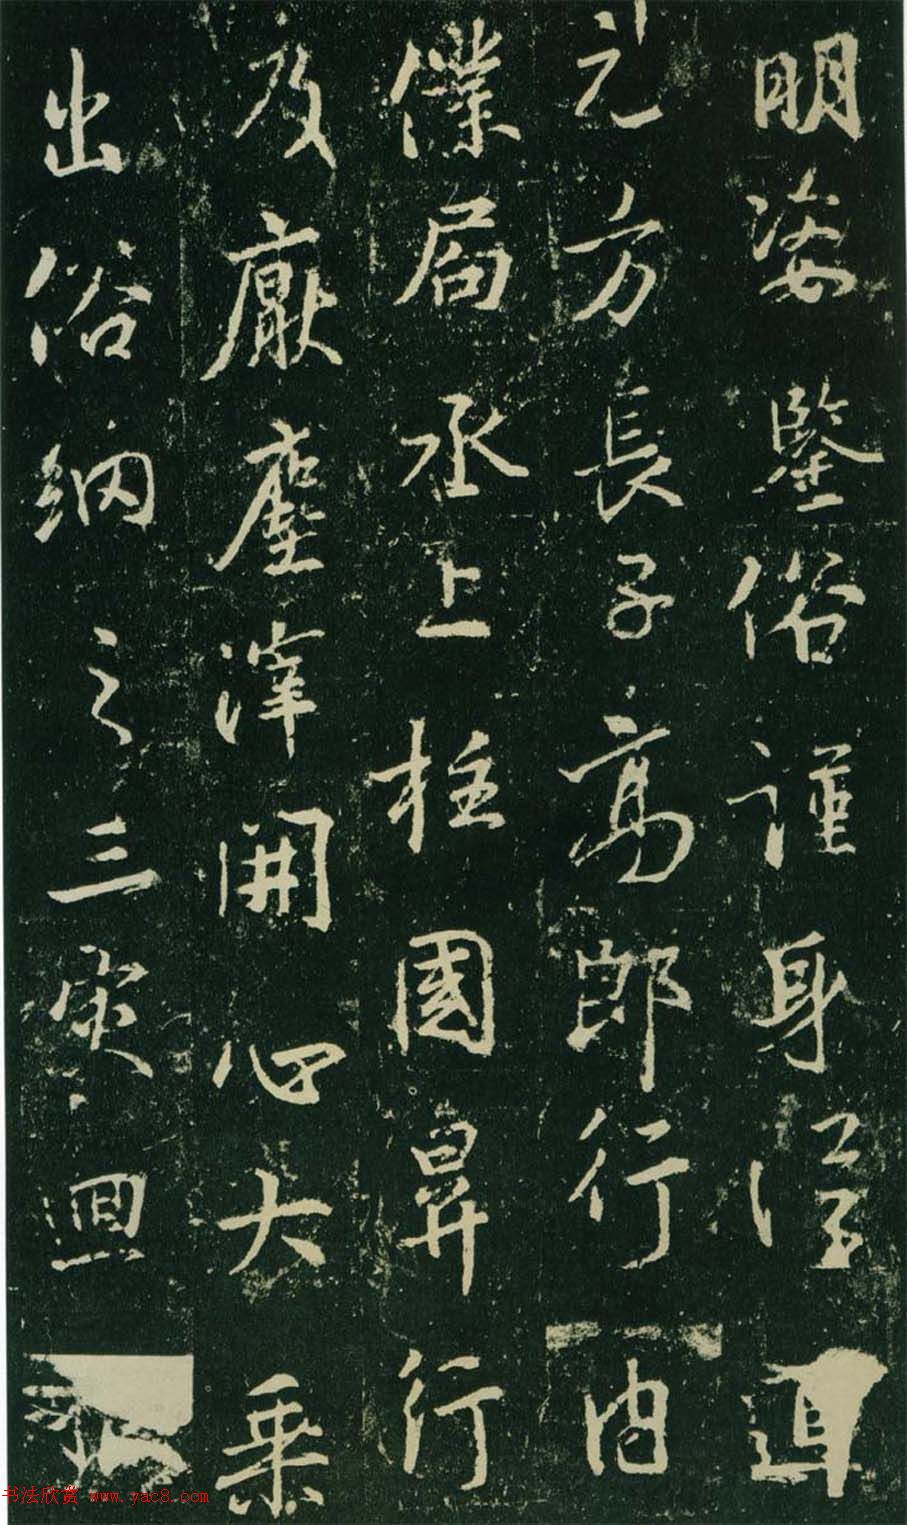 明姿鑒俗謹身從道
元方長子高郎行內
僕局丞上柱國昇行
及厭塵滓開心大乘
出俗網之三寅迴
书法欣赏 www.yac8.com